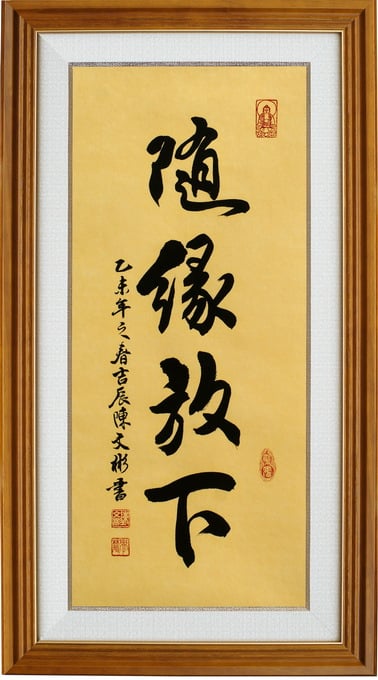 随缘放下
乙未年之春吉辰陳文彬書